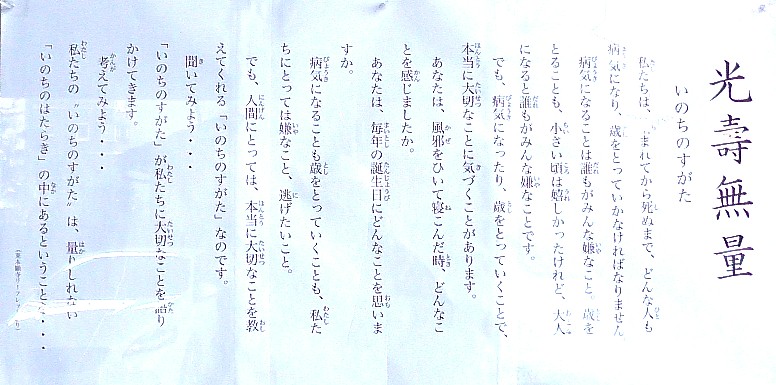 光壽無量
いのちのすがた
私たちは、まれてから死ぬまで、どんな人も
病気になり、歳をとっていかなければなりません
病気になることは誰もがみんな嫌なこと。歳を
とることも、小さい頃は嬉しかったけれど、大人
になると誰もがみんな嫌なことです。
でも、病気になったり、歳をとっていくことで、
本当に大切なことに気づくことがあります。
あなたは、風邪をひいて寝こんだ時、どんなこ
とを感じましたか。
あなたは、毎年の誕生日にどんなことを思いま
すか。
病気になることも歳をとっていくことも、私た
ちにとっては嫌なこと、逃げたいこと。
でも、人間にとっては、本当に大切なことを教
えてくれる「いのちのすがた」なのです。
聞いてみよう・・・
「いのちのすがた」が私たちに大切なことを語り
かけてきます。
考えてみよう・・・
私たちの〝いのちのすがた〟は、量りしれない
「いのちのはたらき」の中にあるということを・・・
(東本願寺リーフレットより)